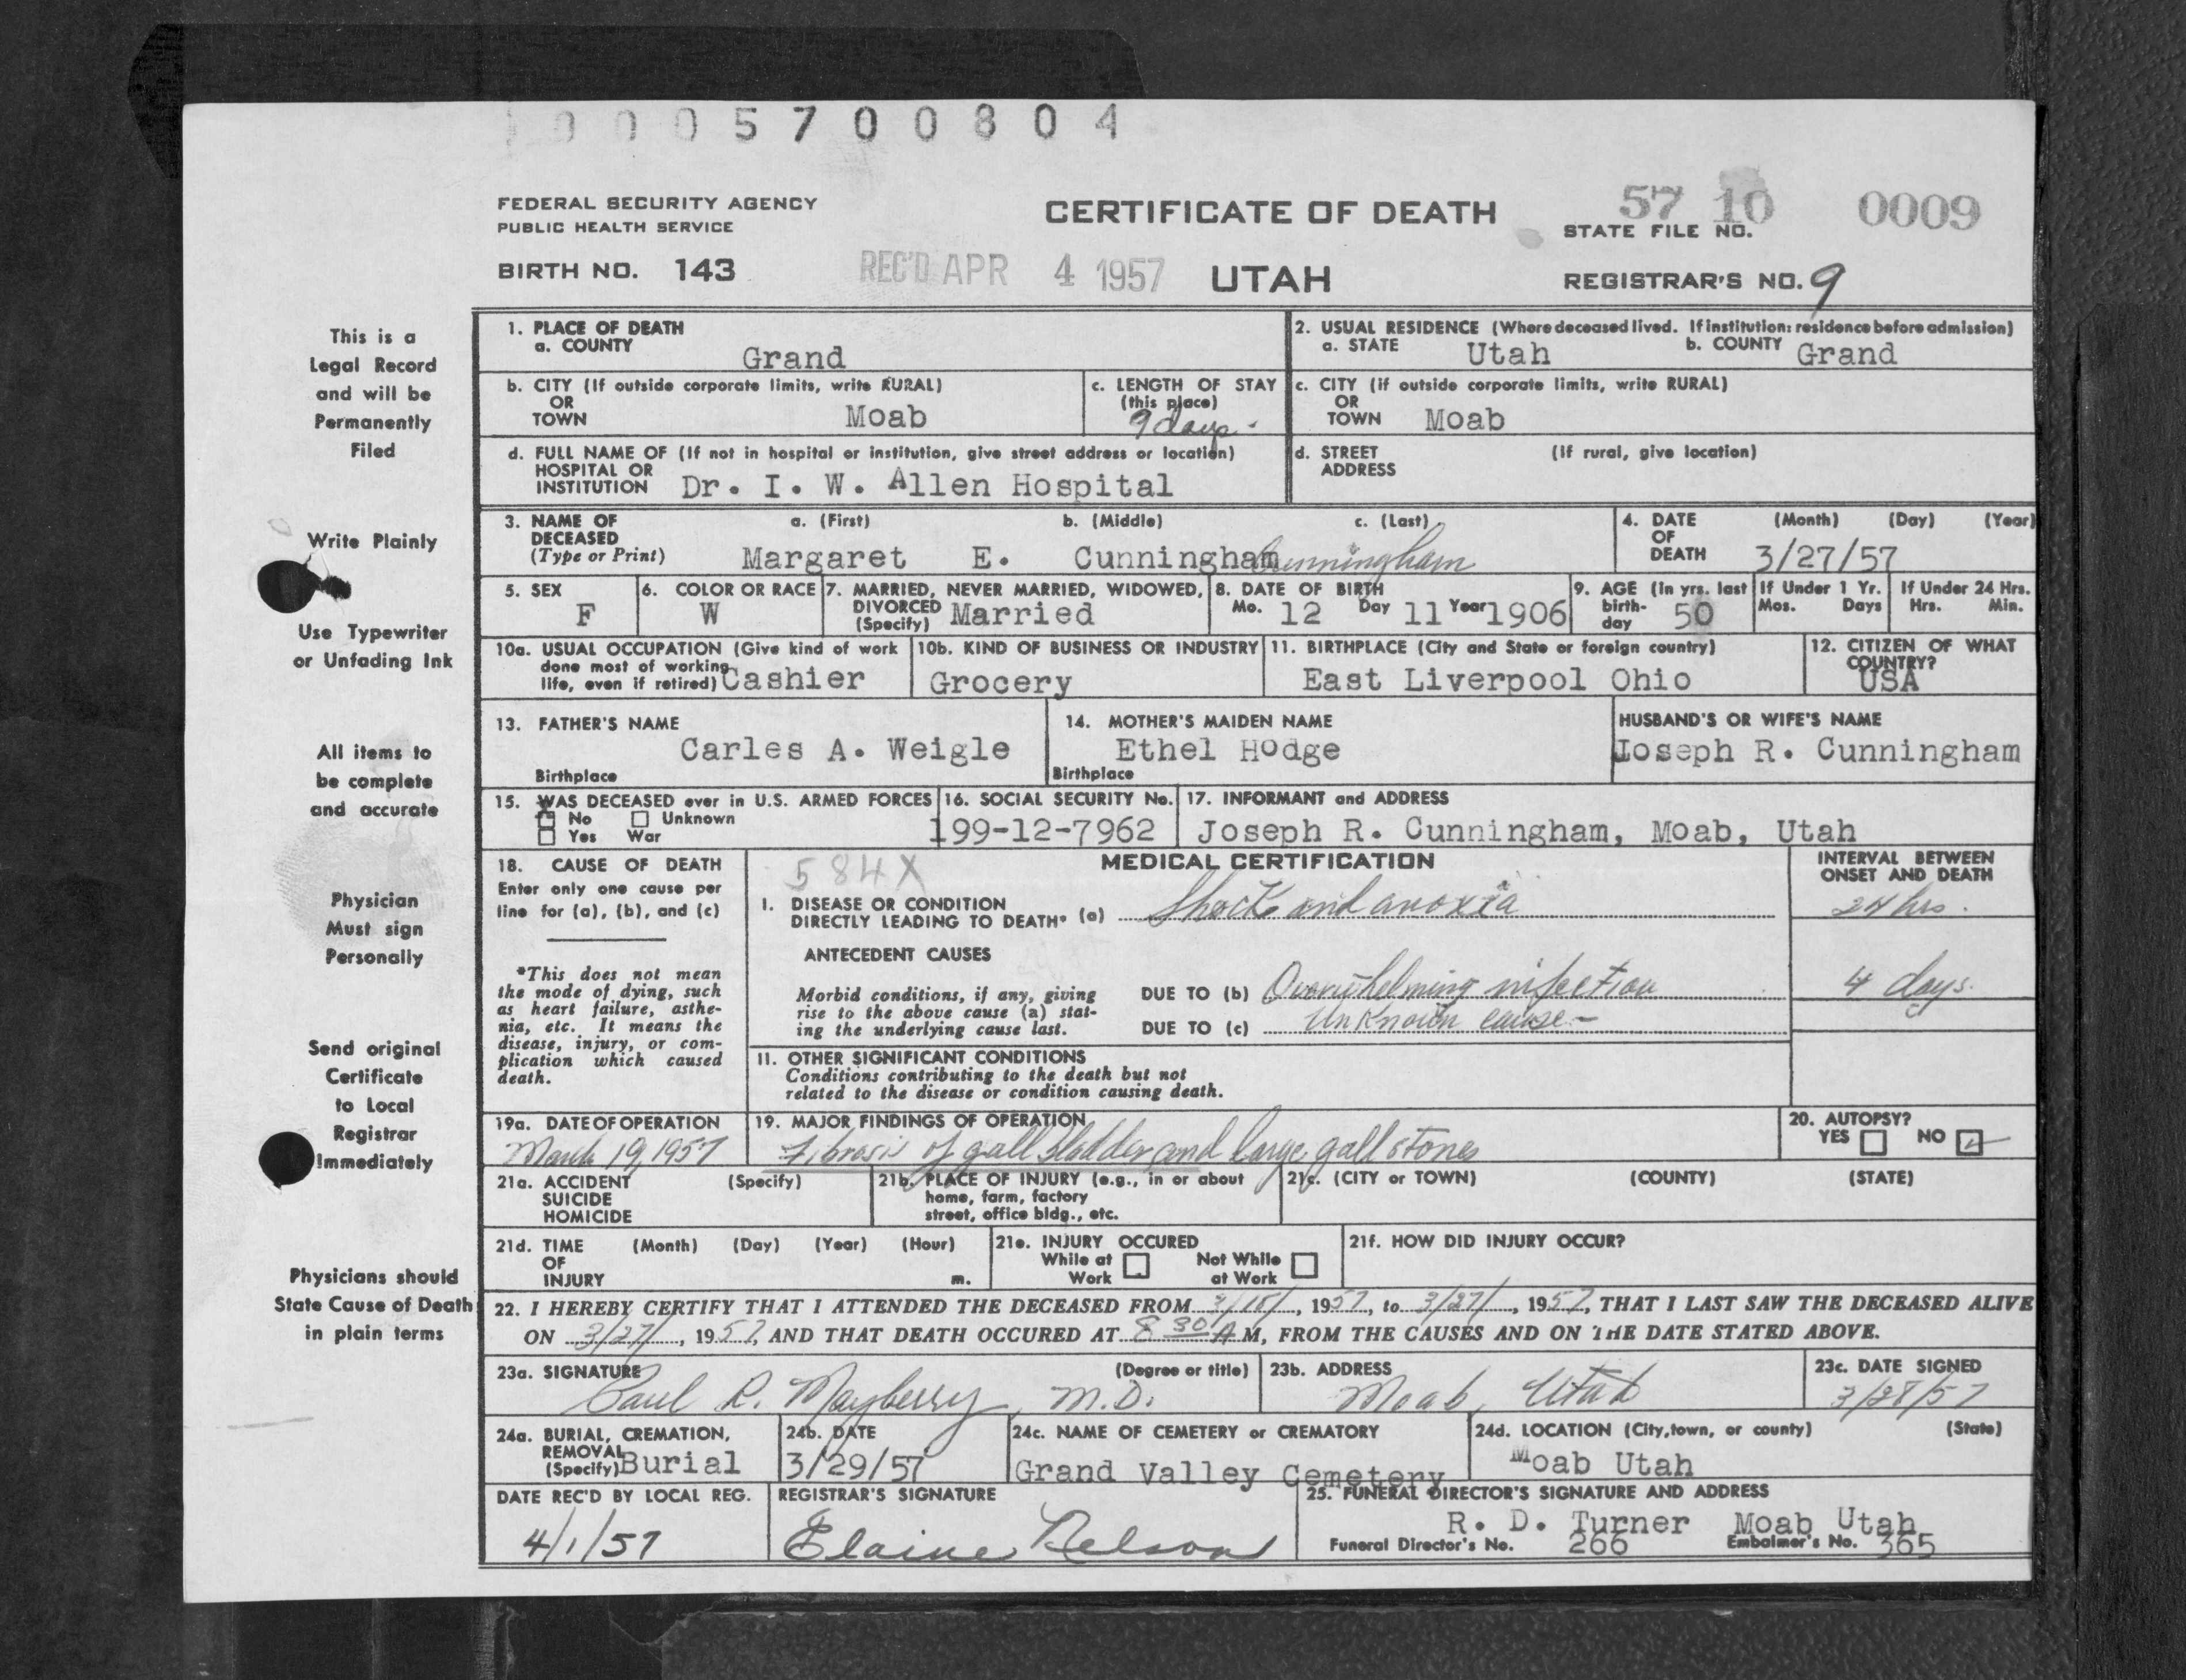 0005700804
FEDERAL SECURITY AGENCY
PUBLIC HEALTH SERVICE
CERTIFICATE OF DEATH
57 10 0009
STATE FILE NO.
BIRTH NO. 143
REC'D APR 4 1957
UTAH
REGISTRAR'S NO. 9
This is a
Legal Record
and will be
Permanently
Filed
Write Plainly
Use Typewriter
or Unfading Ink
All items to
be complete
and accurate
Physician
Must sign
Personally
Send original
Certificate
to Local
Registrar
Immediately
Physicians should
State Cause of Death
in plain terms
1. PLACE OF DEATH
a. COUNTY
Grand
2. USUAL RESIDENCE (Where deceased lived. If institution: residence before admission)
a. STATE Utah b. COUNTY Grand
b. CITY (If outside corporate limits, write RURAL)
OR
TOWN Moab
c. LENGTH OF STAY
(this place)
9 days.
c. CITY (if outside corporate limits, write RURAL)
OR
TOWN Moab
d. FULL NAME OF (If not in hospital or institution, give street address or location)
HOSPITAL OR
INSTITUTION Dr. I. W. Allen Hospital
d. STREET (If rural, give location)
ADDRESS
3. NAME OF a. (First) b. (Middle) c. (Last)
DECEASED
(Type or Print) Margaret E. Cunningham Cunningham
4. DATE (Month) (Day) (Year)
OF
DEATH 3/27/57
5. SEX
F
6. COLOR OR RACE
W
7. MARRIED, NEVER MARRIED, WIDOWED,
DIVORCED
(Specify) Married
8. DATE OF BIRTH
Mo. 12 Day 11 Year 1906
9. AGE (In yrs. last
birth-
day 50
If Under 1 Yr.
Mos. Days
If Under 24 Hrs.
Hrs. Min.
10a. USUAL OCCUPATION (Give kind of work
done most of working
life, even if retired) Cashier
10b. KIND OF BUSINESS OR INDUSTRY
Grocery
11. BIRTHPLACE (City and State or foreign country)
East Liverpool Ohio
12. CITIZEN OF WHAT
COUNTRY?
USA
13. FATHER'S NAME
Carles A. Weigle
Birthplace
14. MOTHER'S MAIDEN NAME
Ethel Hodge
Birthplace
HUSBAND'S OR WIFE'S NAME
Joseph R. Cunningham
15. WAS DECEASED ever in U.S. ARMED FORCES
X No Unknown
Yes War
16. SOCIAL SECURITY No.
199-12-7962
17. INFORMANT and ADDRESS
Joseph R. Cunningham, Moab, Utah
18. CAUSE OF DEATH
Enter only one cause per
line for (a), (b), and (c)
*This does not mean
the mode of dying, such
as heart failure, asthe-
nia, etc. It means the
disease, injury, or com-
plication which caused
death.
584X
MEDICAL CERTIFICATION
INTERVAL BETWEEN
ONSET AND DEATH
I. DISEASE OR CONDITION
DIRECTLY LEADING TO DEATH* (a) Shock and anoxia 24 hrs.
ANTECEDENT CAUSES
Morbid conditions, if any, giving
rise to the above cause (a) stat-
ing the underlying cause last.
DUE TO (b) Overwhelming infection 4 days.
DUE TO (c) Unknown cause-
11. OTHER SIGNIFICANT CONDITIONS
Conditions contributing to the death but not
related to the disease or condition causing death.
19a. DATE OF OPERATION
March 19, 1957
19. MAJOR FINDINGS OF OPERATION
Fibrosis of gall bladder and large gall stones
20. AUTOPSY?
YES NO
21a. ACCIDENT (Specify)
SUICIDE
HOMICIDE
21b. PLACE OF INJURY (e.g., in or about
home, farm, factory
street, office bldg., etc.
21c. (CITY or TOWN) (COUNTY) (STATE)
21d. TIME (Month) (Day) (Year) (Hour)
OF
INJURY m.
21e. INJURY OCCURED
While at Not While
Work at Work
21f. HOW DID INJURY OCCUR?
22. I HEREBY CERTIFY THAT I ATTENDED THE DECEASED FROM 3/18/, 1957, to 3/27/, 1957, THAT I LAST SAW THE DECEASED ALIVE
ON 3/27/, 1957, AND THAT DEATH OCCURED AT 8 30 A M, FROM THE CAUSES AND ON THE DATE STATED ABOVE.
23a. SIGNATURE (Degree or title)
Paul R. Mayberry, M.D.
23b. ADDRESS
Moab, Utah
23c. DATE SIGNED
3/28/57
24a. BURIAL, CREMATION,
REMOVAL
(Specify) Burial
24b. DATE
3/29/57
24c. NAME OF CEMETERY or CREMATORY
Grand Valley Cemetery
24d. LOCATION (City, town, or county) (State)
Moab Utah
DATE REC'D BY LOCAL REG.
4/1/57
REGISTRAR'S SIGNATURE
Elaine Nelson
25. FUNERAL DIRECTOR'S SIGNATURE AND ADDRESS
R. D. Turner Moab Utah
Funeral Director's No. 266 Embalmer's No. 365